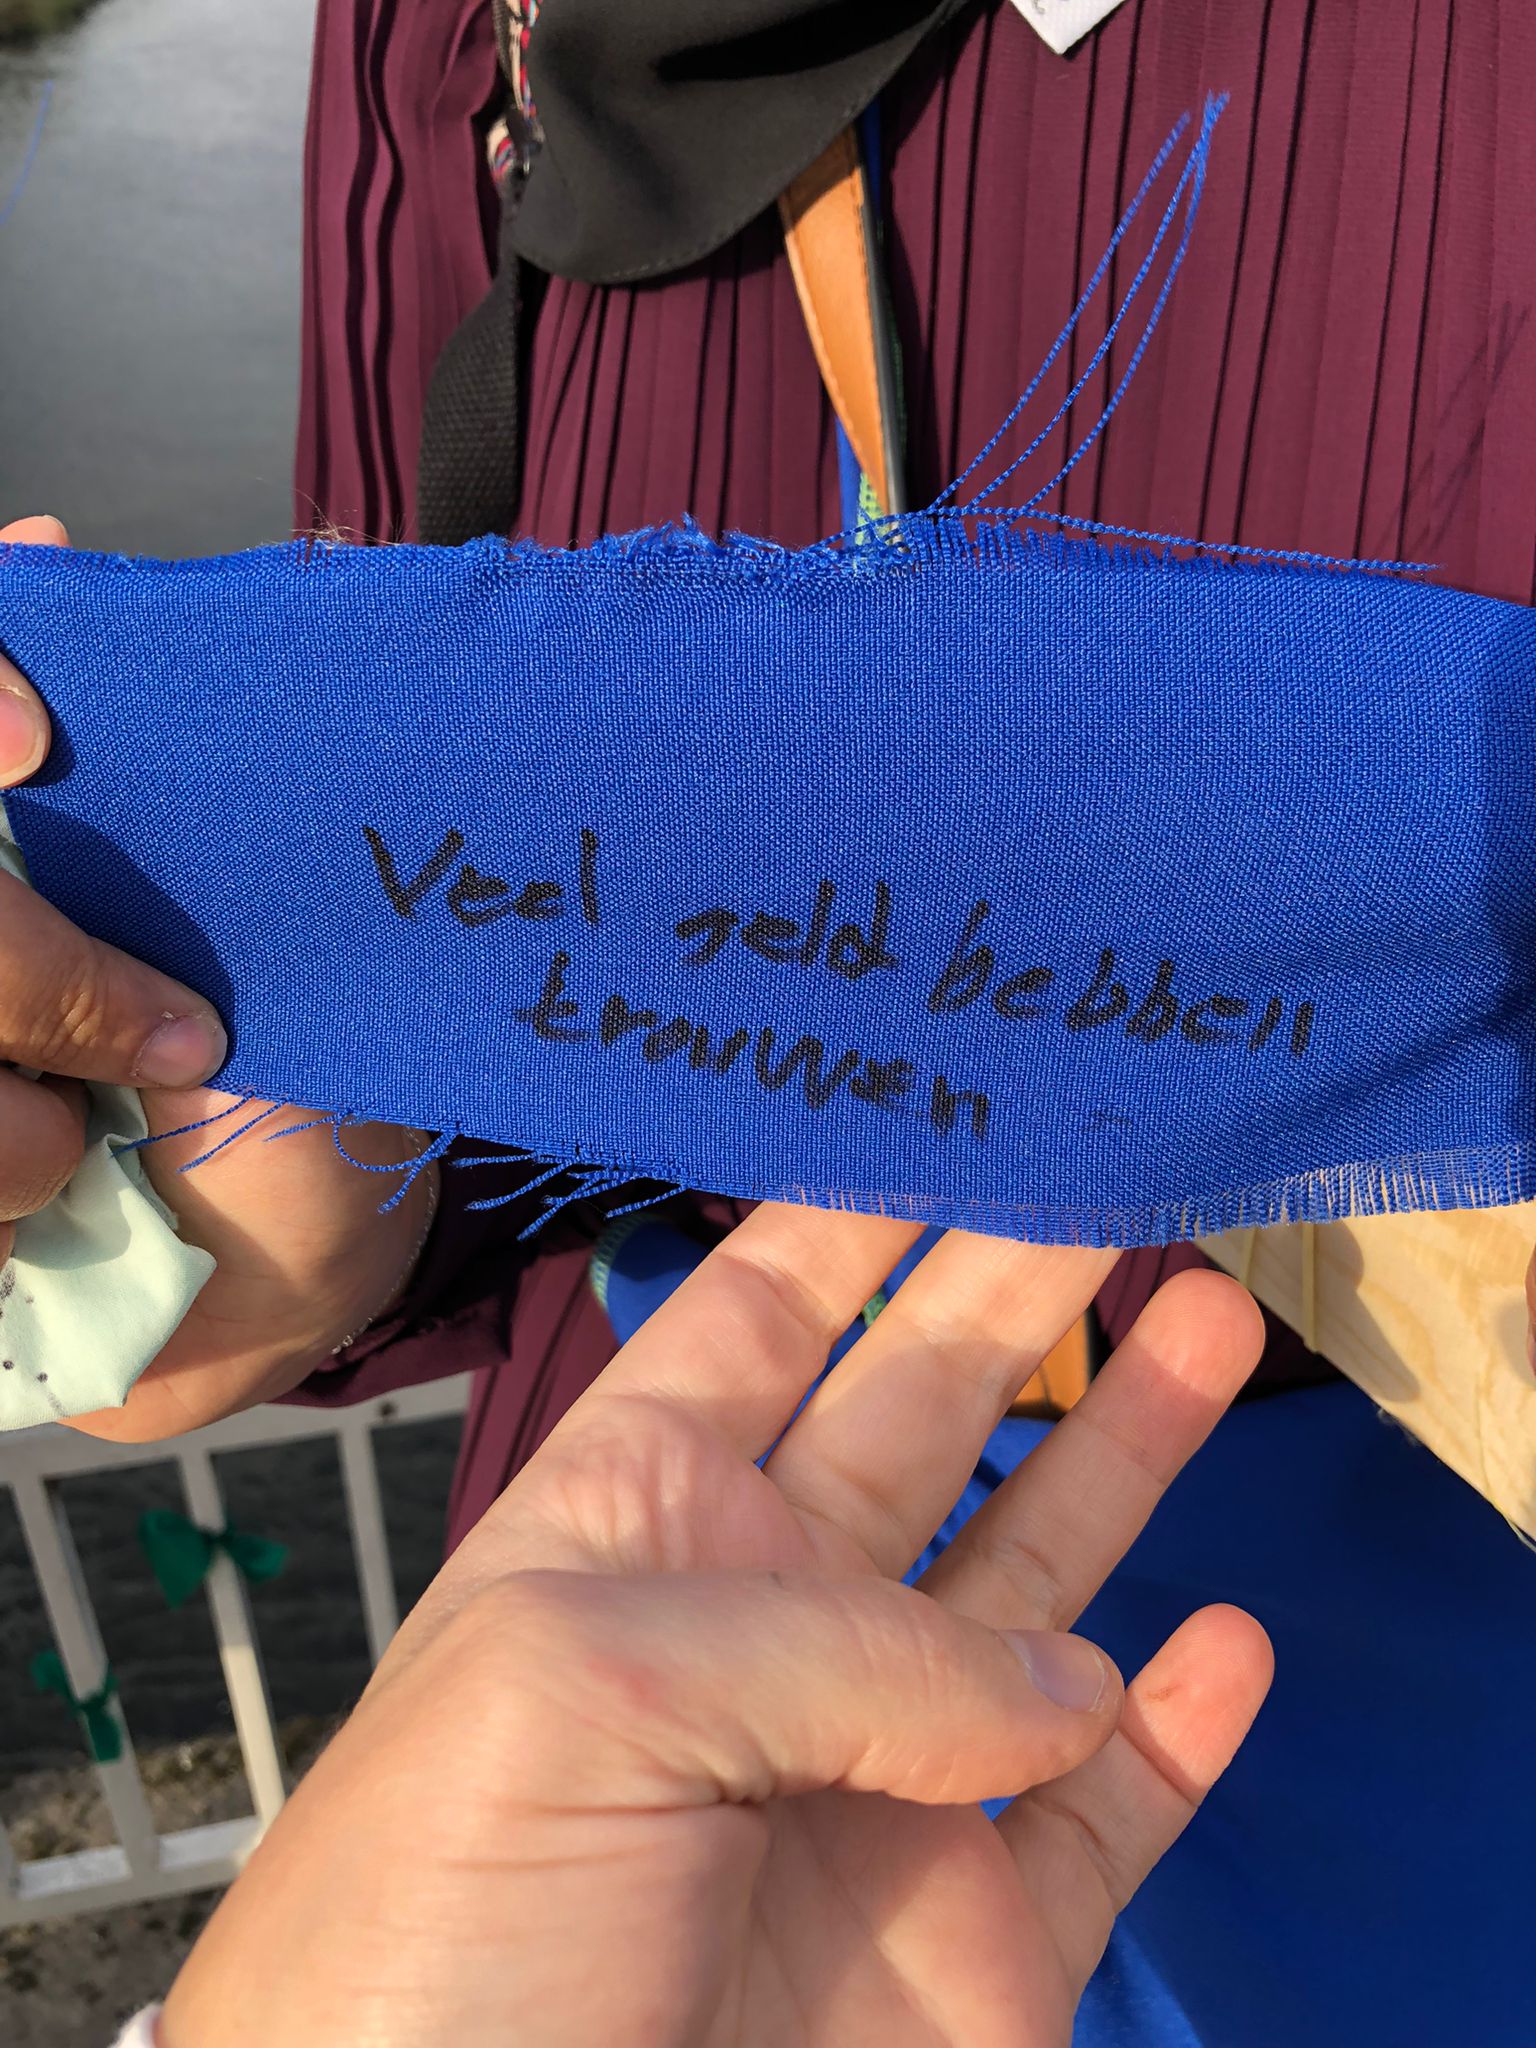 Veel geld hebben
trouwen